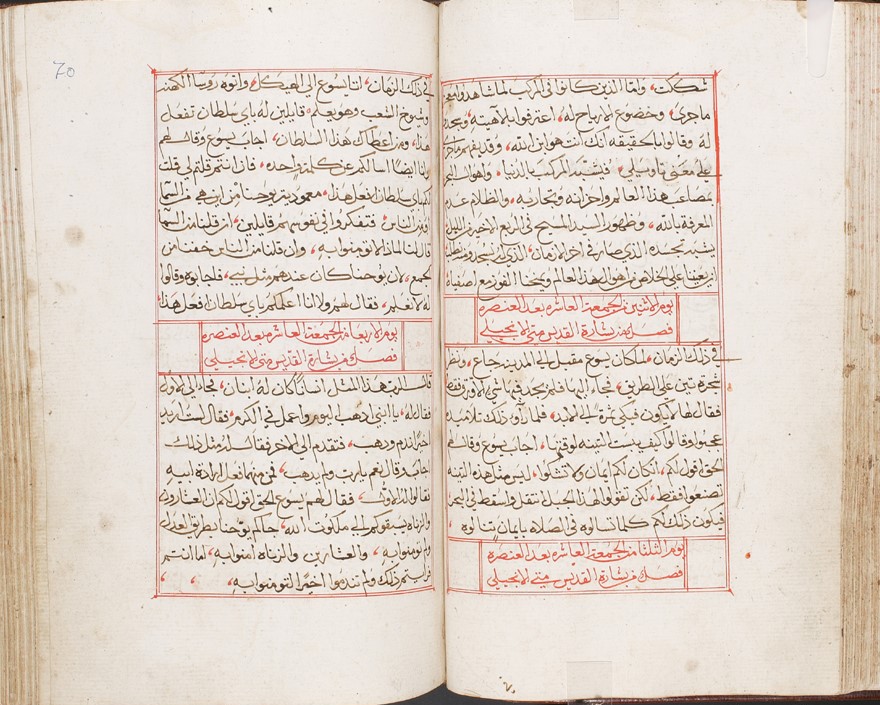 شككت، وامّا الذين كانوا في المركب لما شاهدوا معجز
ما جرى، وخضوع الارياح له، اعترفوا بلاهيته، وسجدوا
له وقالوا بالحقيقه انك انت هو ابن الله، وقد يفهم ما جرى
على معنى تاويلي، فيشبه المركب بالدنيا، واهوال البحر
بمصاعب هذا العالم واحزانه وتجاربه، والظلام عدم
المعرفة بالله، وظهور السيد المسيح في الربع الاخير من الليل
يشبه تجسده الذي صار في اخر الازمان، الذي له نسجد ومنه نطلب
ان يعيننا على الخلاص من اهوال هذا العالم ويمنحنا الفوز مع اصفيائه
يوم الاثنين من الجمعة العاشره بعد العنصره
فصل من بشارة القديس متى الانجيلي
في ذلك الزمان، لما كان يسوع مقبل الى المدينه جاع، ونظر
شجرة تين على الطريق، فجاء اليها فلم يجد فيها شي الا ورق فقط
فقال لها لا يكون فيكي ثمرة الى الابد، فلما راوا ذلك تلاميذه
عجبوا وقالوا كيف يبست التينه لوقتها، اجاب يسوع وقال لهم
الحق اقول لكم، ان كان لكم ايمان ولا تشكوا، ليس مثل هذه التينه
تصنعوا فقط، لكن تقولوا لهذا الجبل انتقل واسقط في البحر
فيكون ذلك لكم كلما تسالوه في الصلاه بايمان تنالوه
يوم الثلثا من الجمعة العاشره بعد العنصره
فصل من بشارة القديس متى الانجيلي
70
في ذلك الزمان، اتا يسوع الى الهيكل، واتوه روسا الكهنه
وشيوخ الشعب وهو يعلم، قايلين له باي سلطان تفعل
هذا، ومن اعطاك هذا السلطان، اجاب يسوع وقال لهم
وانا ايضًا اسالكم عن كلمة واحده، فان انتم قلتم لي قلت
لكم باي سلطان افعل هذا، معمودية يوحنا من اين هي من السما
او من الناس، فتفكروا في نفوسهم قايلين، ان قلنا من السما
قال لنا لماذا لا تومنوا به، وان قلنا من الناس خفنا من
الجمع، لان يوحنا كان عندهم مثل نبي، فاجابوه وقالوا
له لا نعلم، فقال لهم ولا انا اعلمكم باي سلطان افعل هذا
يوم الاربعا من الجمعة العاشره بعد العنصره
فصل من بشارة القديس متى الانجيلي
قال الرب هذا المثل انسانًا كان له ابنان، فجاء الى الاول
فقال له، يا ابني اذهب اليوم واعمل في الكرم، فقال لست اريد
اخيرًا ندم وذهب، فتقدم الى الاخر فقال له مثل ذلك
اجاب قال نعم يارب ولم يذهب، فمن منهما فعل ارادة ابيه
فقالوا له الاول، فقال لهم يسوع الحق اقول لكم ان العشارون
والزناه يسبقوكم الى ملكوت الله، جاكم يوحنا بطريق العدل
ولم تومنوا به، والعشارين والزناه امنوا به، اما انتم
فرايتم ذلك ولم تندموا اخيرًا لتومنوا به،